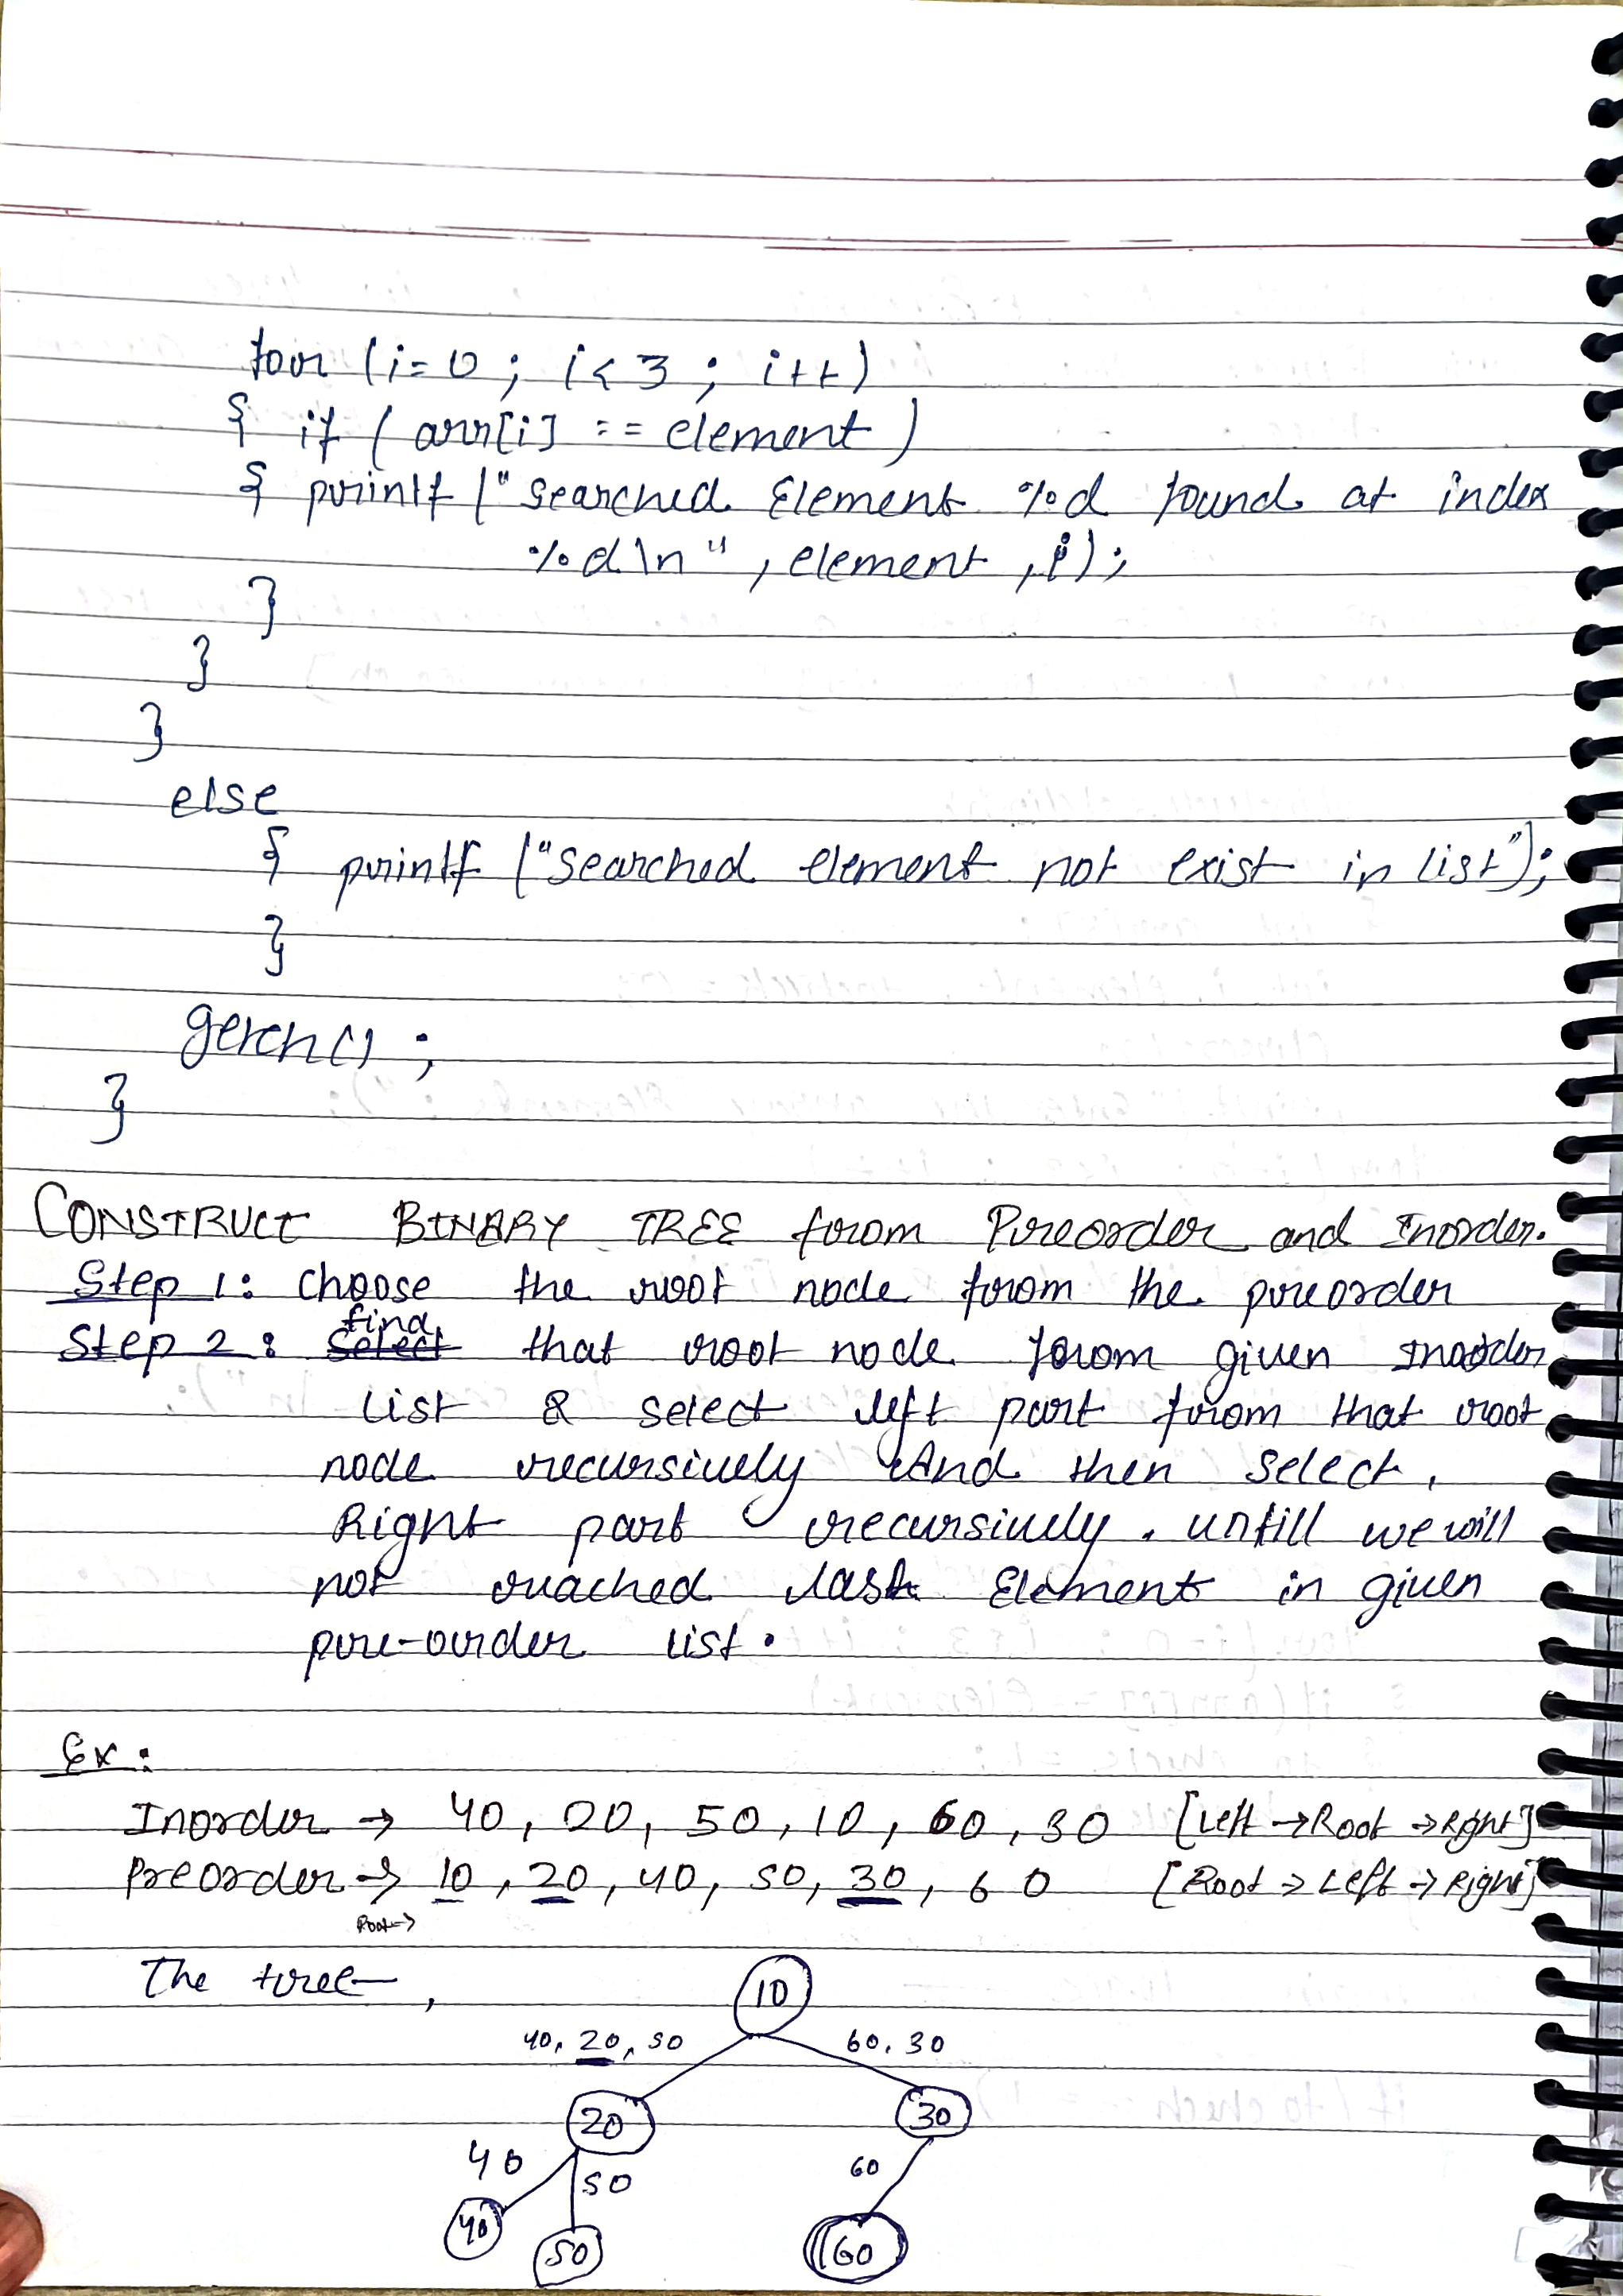 for (i=0 ; i<3 ; i++)
{ if (arr[i] == element)
{ printf ("Searched Element %d found at index
%d\n" , element , i);
}
}
}
else
{ printf ("Searched element not exist in list");
}
getch();
}
CONSTRUCT BINARY TREE from Preorder and Inorder.
Step 1: Choose the root node from the preorder
find
Step 2: Select that root node from given Inorder
List & select left part from that root
node recursively And then select
Right part recursively. untill we will
not reached last Element in given
pre-order list.
Ex:
Inorder → 40, 20, 50, 10, 60, 30 [Left → Root → Right]
Preorder → 10, 20, 40, 50, 30, 60 [Root → Left → Right]
Root →
The tree,
10
40, 20, 50 60, 30
20 30
40 50 60
40 50 60